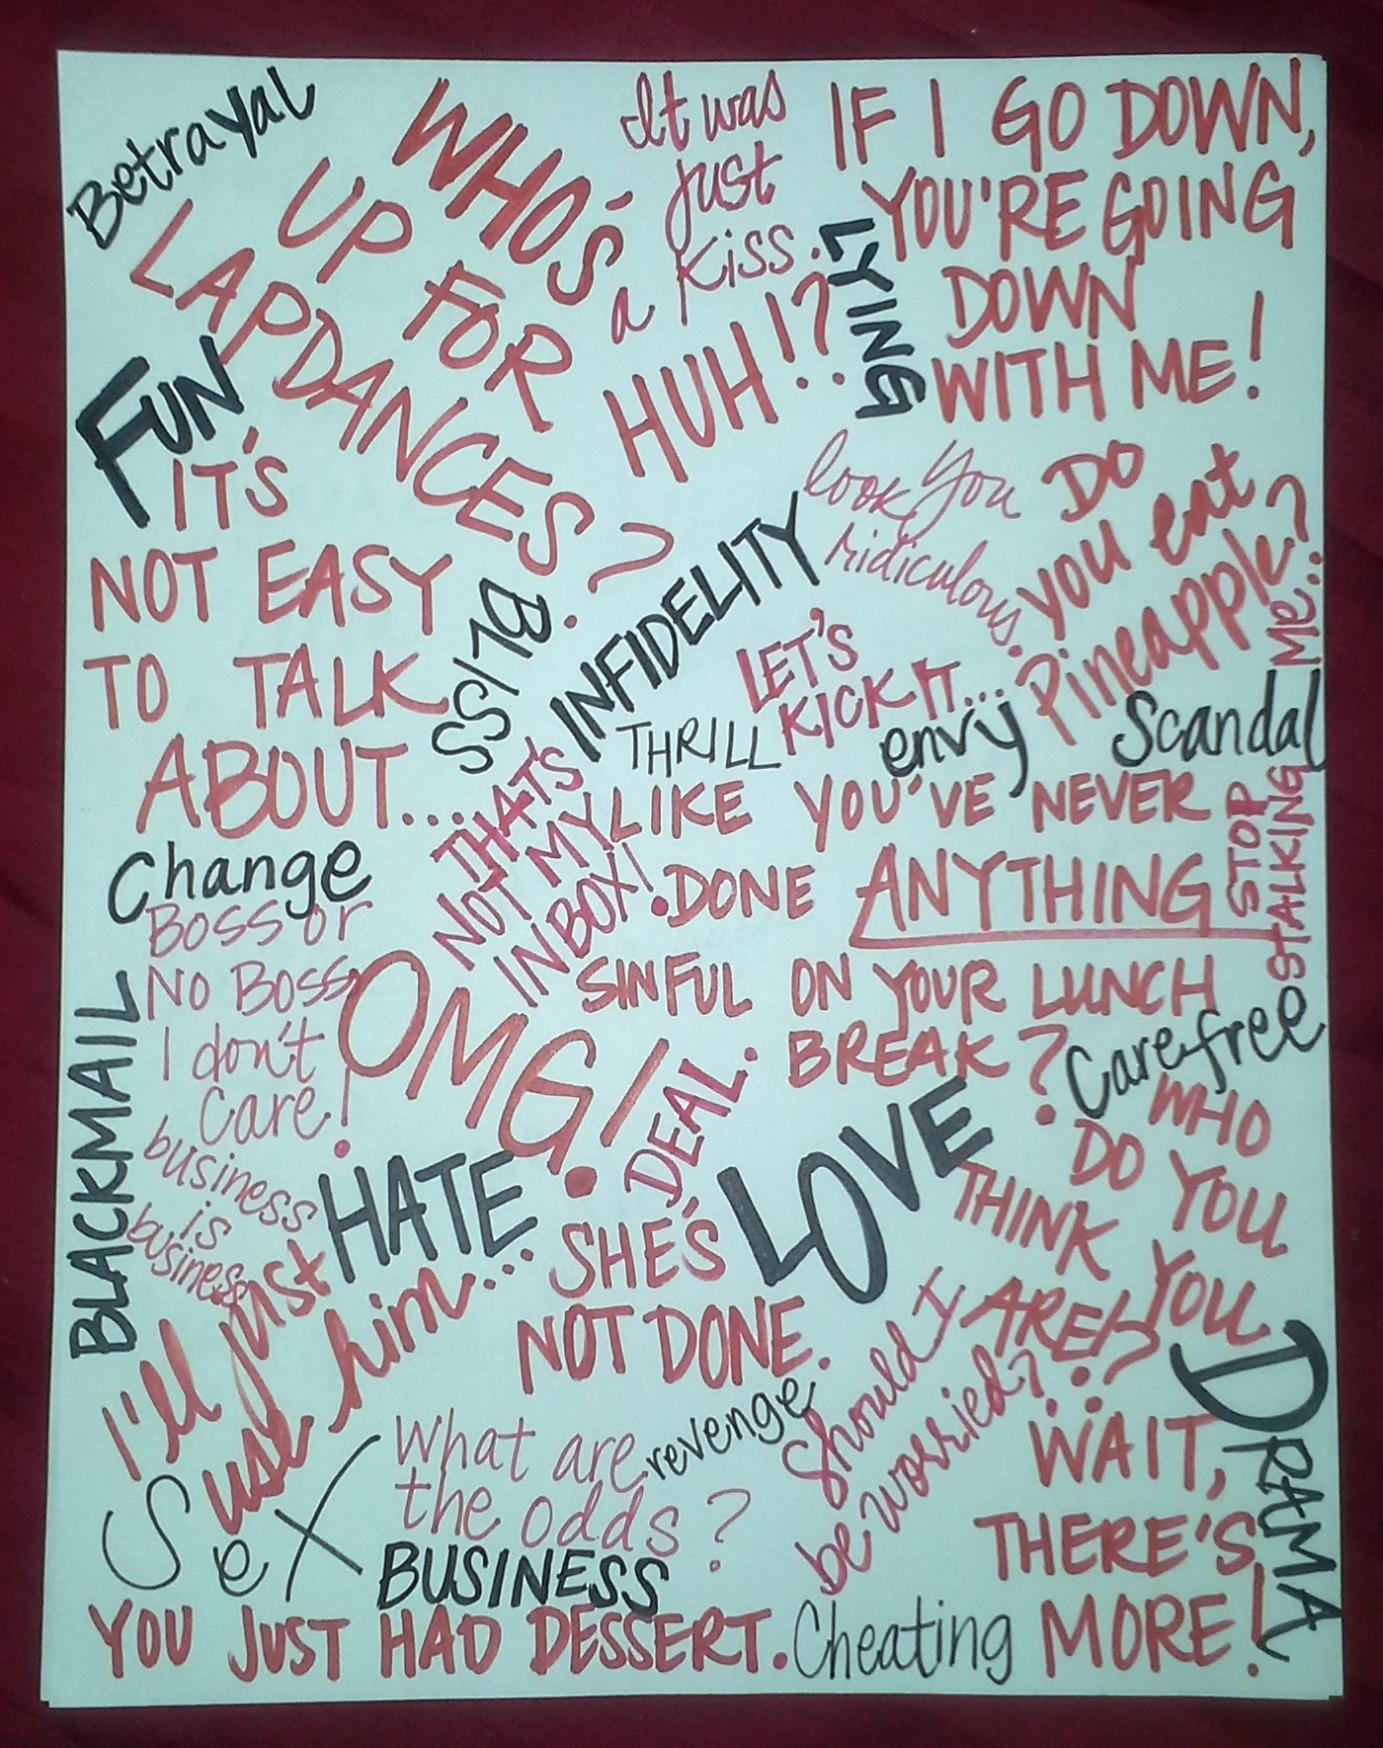 Betrayal
WHO'S
UP FOR
LAPDANCES?
It was
just
a kiss.
HUH!?
IF I GO DOWN,
YOU'RE GOING
DOWN
WITH ME!
LYING
FUN
IT'S
NOT EASY
TO TALK
ABOUT...
BLISS
INFIDELITY
look, you
ridiculous.
DO
you eat
Pineapple?
LET'S
KICK IT...
THRILL
envy
Scandal
STOP
STALKING
ME..
THAT'S
NOT MY
INBOX!
LIKE YOU'VE NEVER
DONE ANYTHING
SINFUL ON YOUR LUNCH
BREAK?
Change
Boss or
No Boss,
I don't
care!
OMG!
BLACKMAIL
business
is
business
DEAL.
LOVE
Carefree
WHO
DO YOU
THINK YOU
ARE!?
HATE
I'll just
use him...
SHE'S
NOT DONE.
Should I
be worried?
DRAMA
SeX
What are
the odds?
revenge
BUSINESS
WAIT,
THERE'S
MORE!
YOU JUST HAD DESSERT.
Cheating